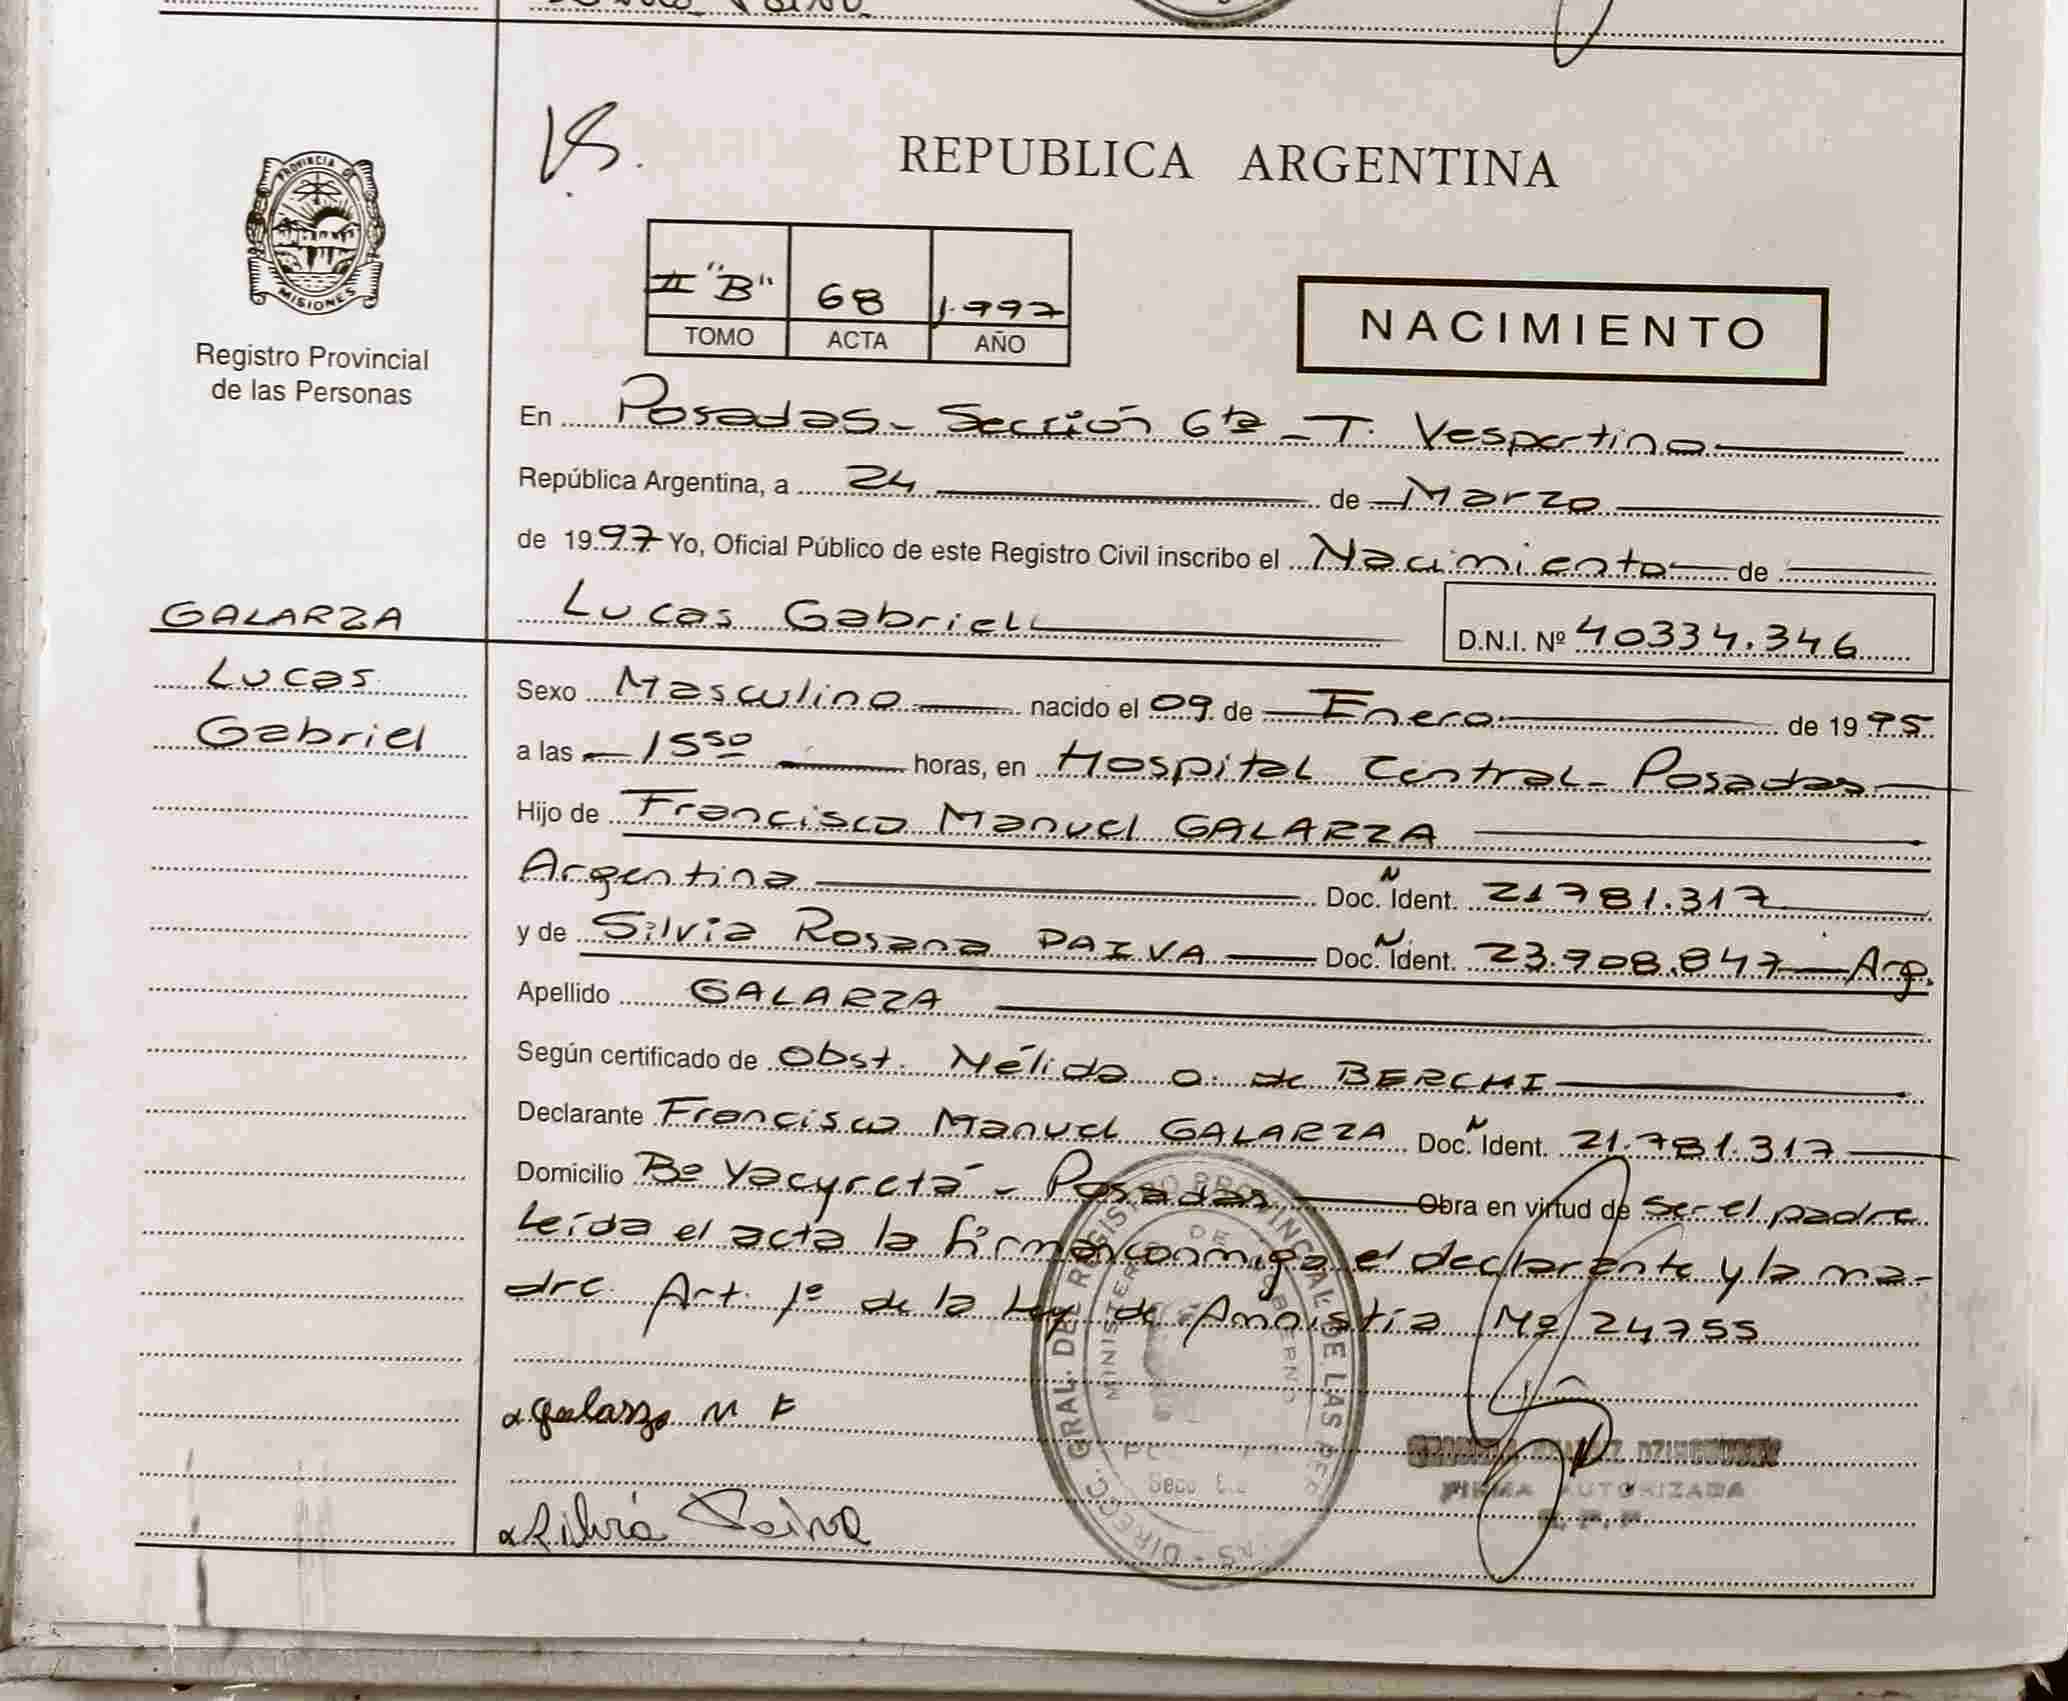 PROVINCIA DE
MISIONES
Registro Provincial
de las Personas
REPUBLICA ARGENTINA
II "B" 68 1.997
TOMO ACTA AÑO
NACIMIENTO
En Posadas - Sección 6ta - T. Vespertino
República Argentina, a 24 de Marzo
de 1997 Yo, Oficial Público de este Registro Civil inscribo el Nacimiento de
GALARZA Lucas Gabriel D.N.I. Nº 40334.346
Lucas
Gabriel
Sexo Masculino nacido el 09 de Enero de 1995
a las 15 50 horas, en Hospital Central - Posadas
Hijo de Francisco Manuel GALARZA
Argentina Doc. N Ident. 21781.317
y de Silvia Rosana PAIVA Doc. N Ident. 23.908.847 - Arg.
Apellido GALARZA
Según certificado de Obst. Nélida O. de BERCHI
Declarante Francisco Manuel GALARZA Doc. N Ident. 21.781.317
Domicilio Bº Yacyretá - Posadas Obra en virtud de ser el padre
Leída el acta la firman conmigo el declarante y la ma-
dre. Art. 1º de la Ley de Amnistía Nº 24755
Galarza M F
Silvia Paiva
DIREC. GRAL. DEL REGISTRO PROVINCIAL DE LAS PERS
MINISTERIO DE GOBIERNO
FIRMA AUTORIZADA